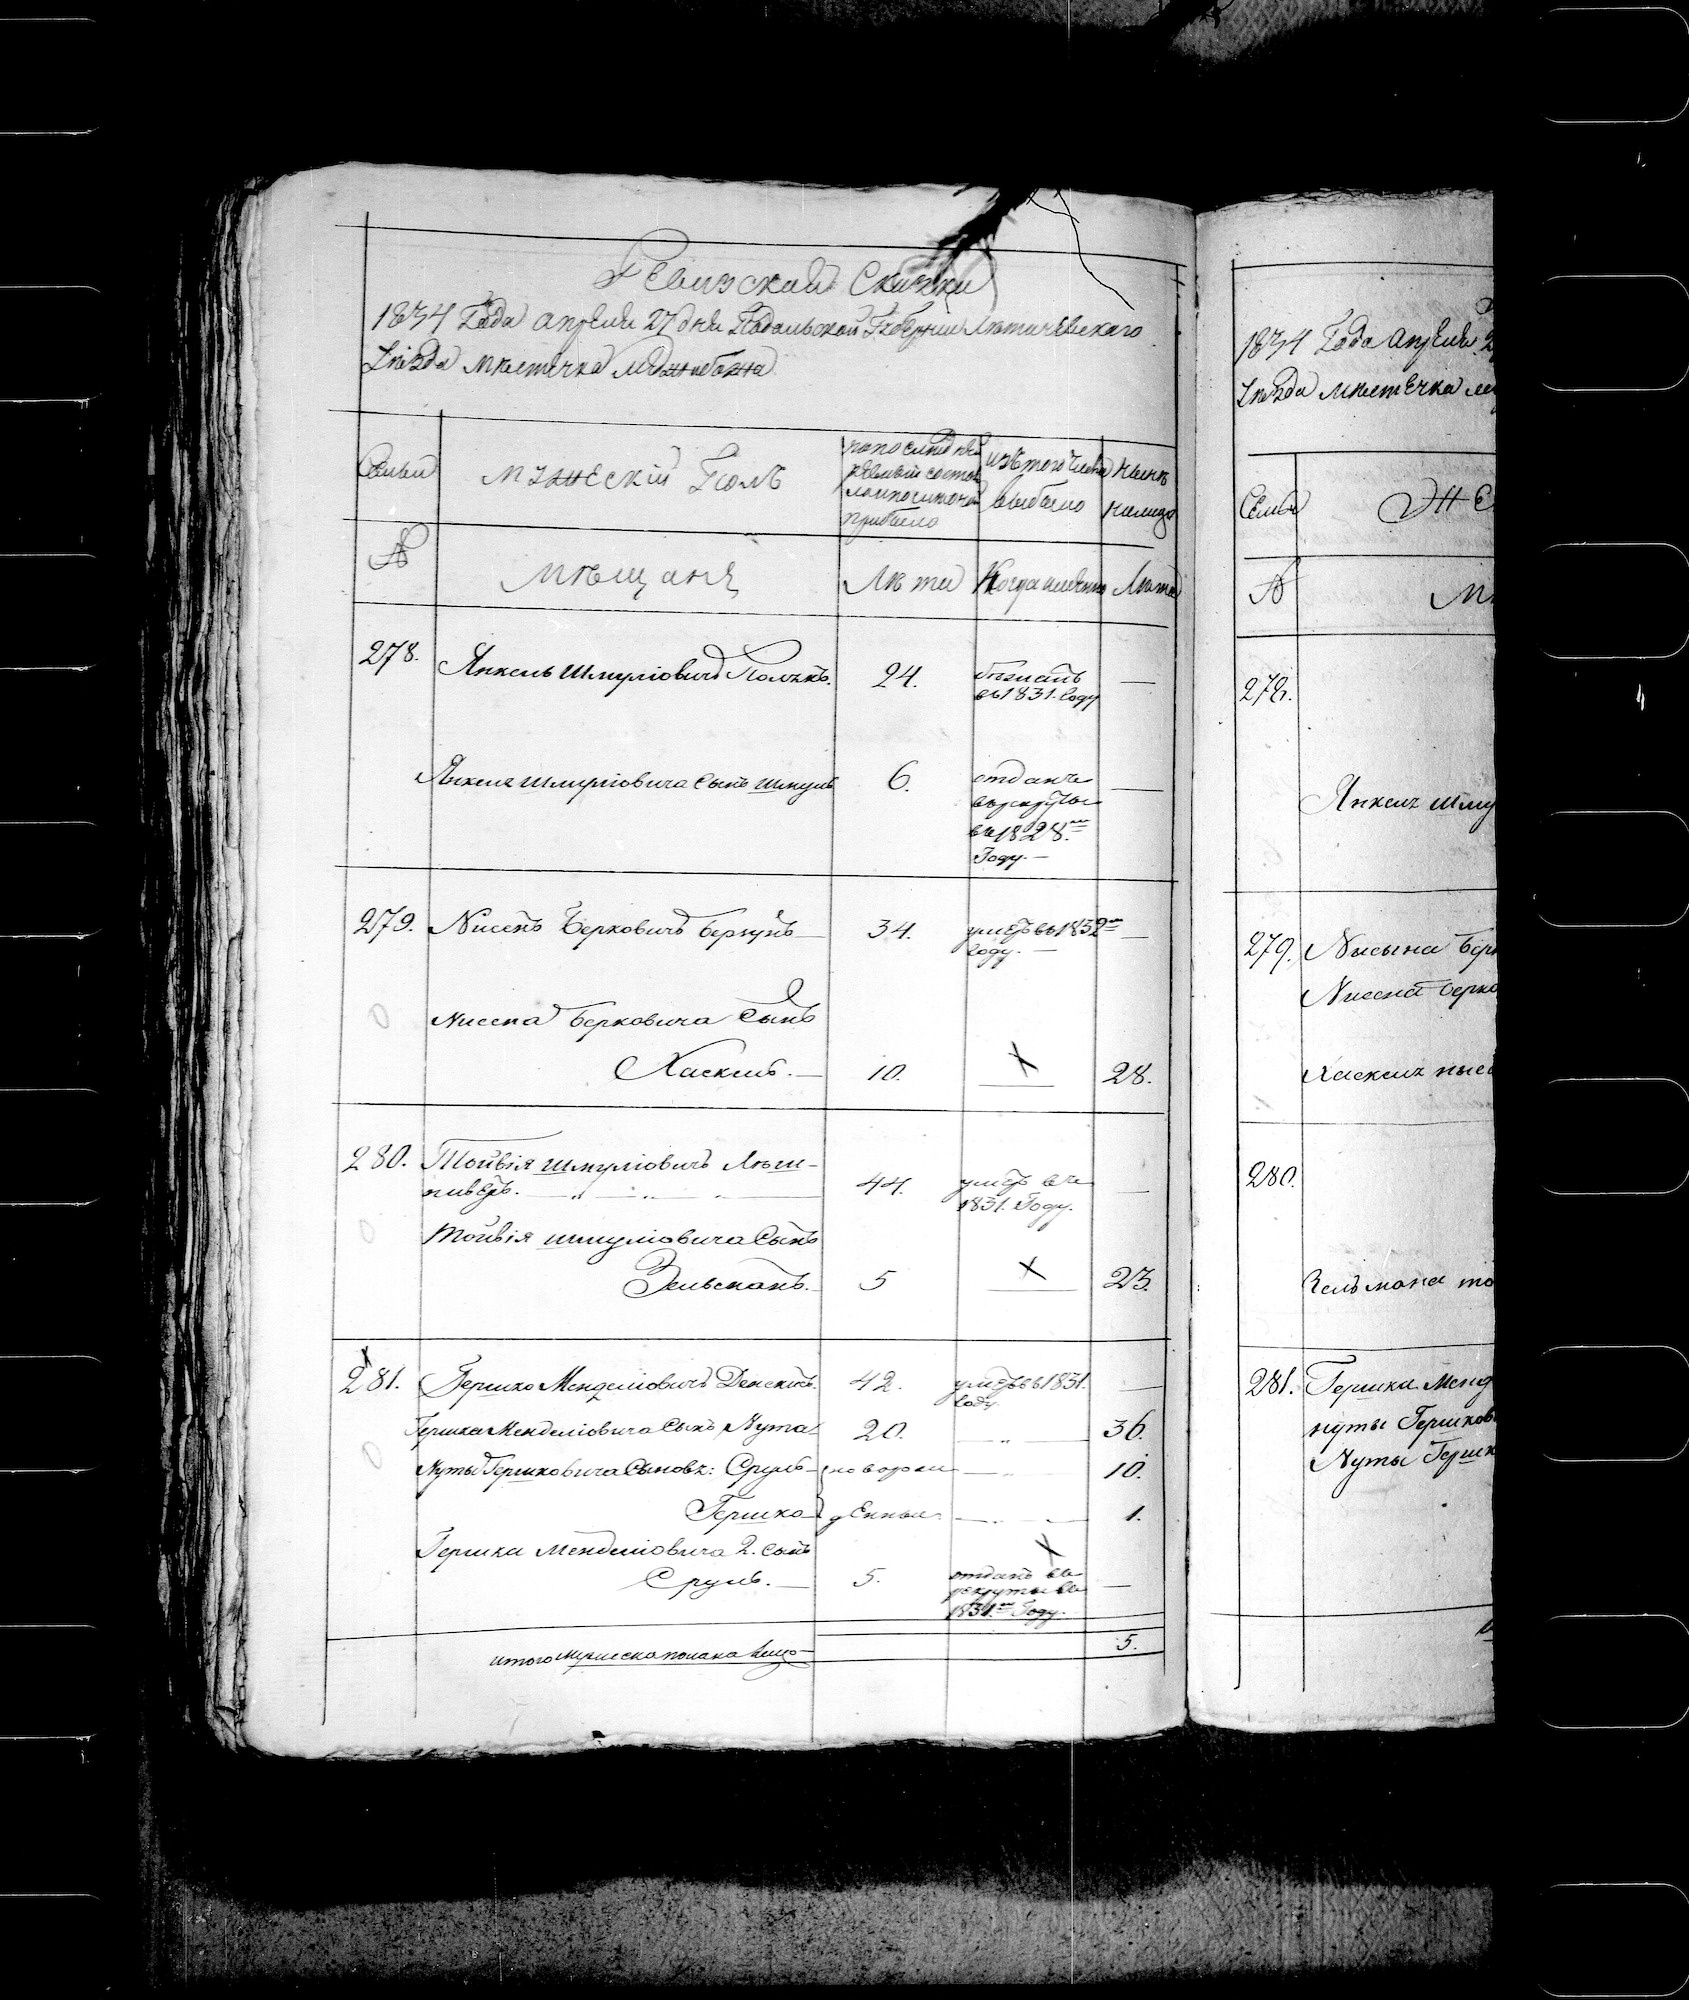 Ревизская Сказка
1834 Года апреля 27 дня Подольской Губернии Летичевского
Уезда местечка Меджибожа
Семьи
мужеский Полъ
изъ того числа
выбыло
ныне
налицо
прибыло
№
мѣщане
Лѣта
Когда именно
Лѣта
278.
Янкель Шмуліовичъ
24.
въ 1831. году
—
Янкеля Шмуліовича сынъ Шмуль
6.
отданъ
въ рекруты
въ 1828.
Году. —
—
279.
Нисенъ Берковичъ
34.
умеръ въ 1832
году. —
—
Нисена Берковича Сынъ
Хаскель. —
10.
28.
280.
Тойвія Шмуліовичъ
44.
умеръ въ
1831. Году.
—
Тойвія Шмуліовича Сынъ
5
23.
281.
Гершко Менделіовичъ
42.
умеръ въ 1831.
году.
—
Гершка Менделіовича Сынъ Нута
20.
36.
Нуты Гершковича Сыновъ: Сруль
новорож
10.
Гершко
денные
1.
Гершка Менделіовича 2. сынъ
Сруль. —
5.
отданъ въ
рекруты въ
1831. Году.
—
итого мужеска пола на лицо
5.
1834 Года апреля 2
Уезда местечка ме
Семьи
Же
№
М
278.
Янкеля Шму
279.
Нисена Берко
280.
281.
Гершка Менд
Нуты Гершков
Нуты Гершк